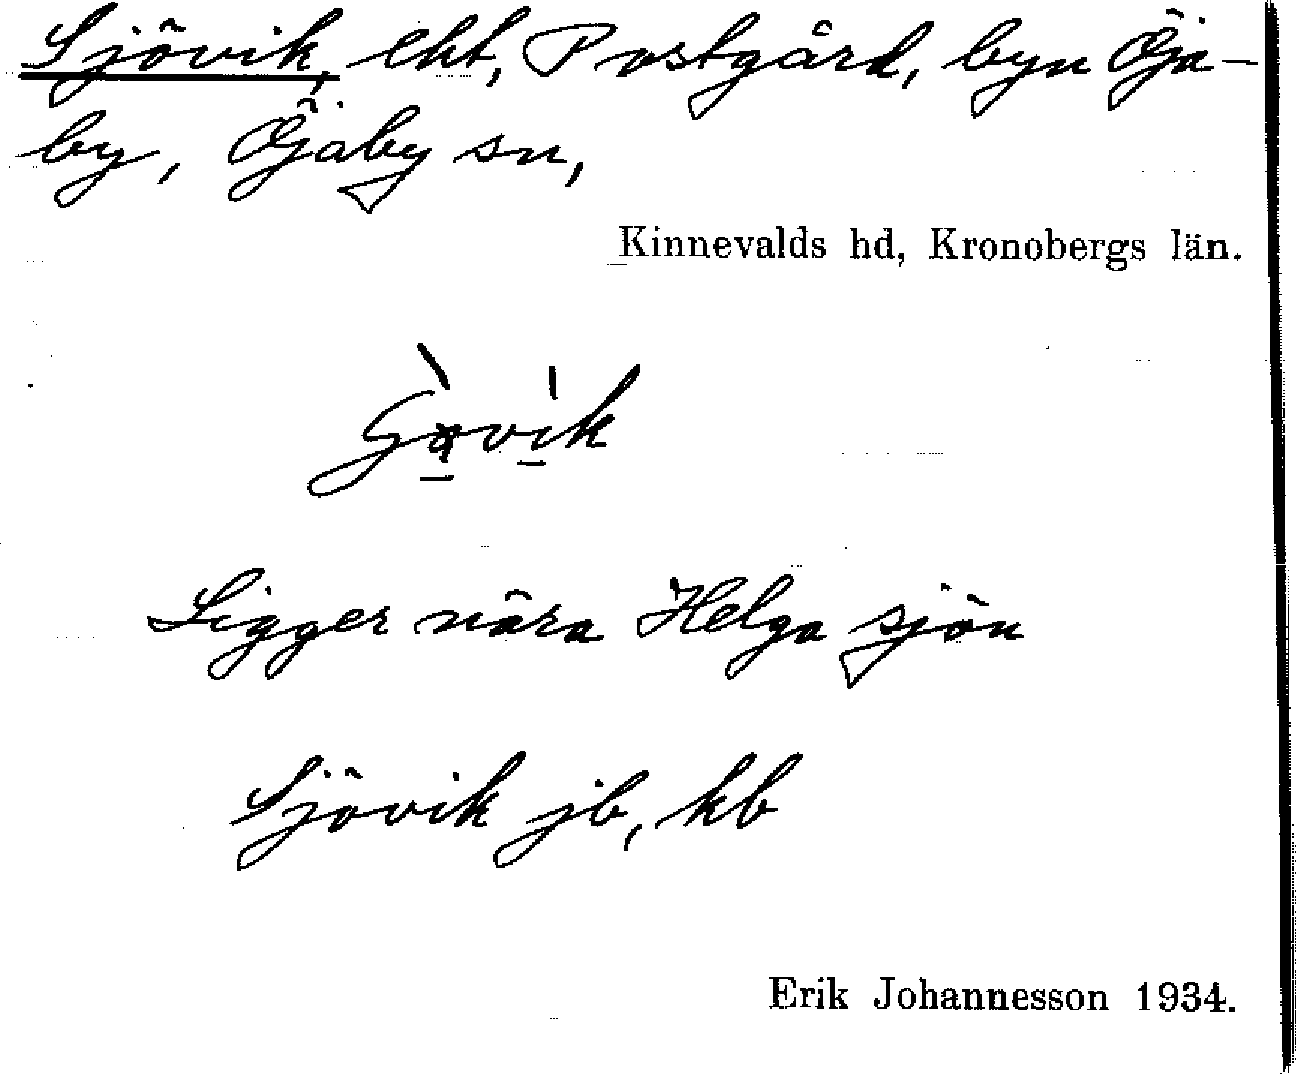 Sjövik, lht, Postgård, byn Öja-
by, Öjaby sn,
Kinnevalds hd, Kronobergs län.
Ligger nära Helga sjön
Sjövik jb, kb
Erik Johannesson 1934.